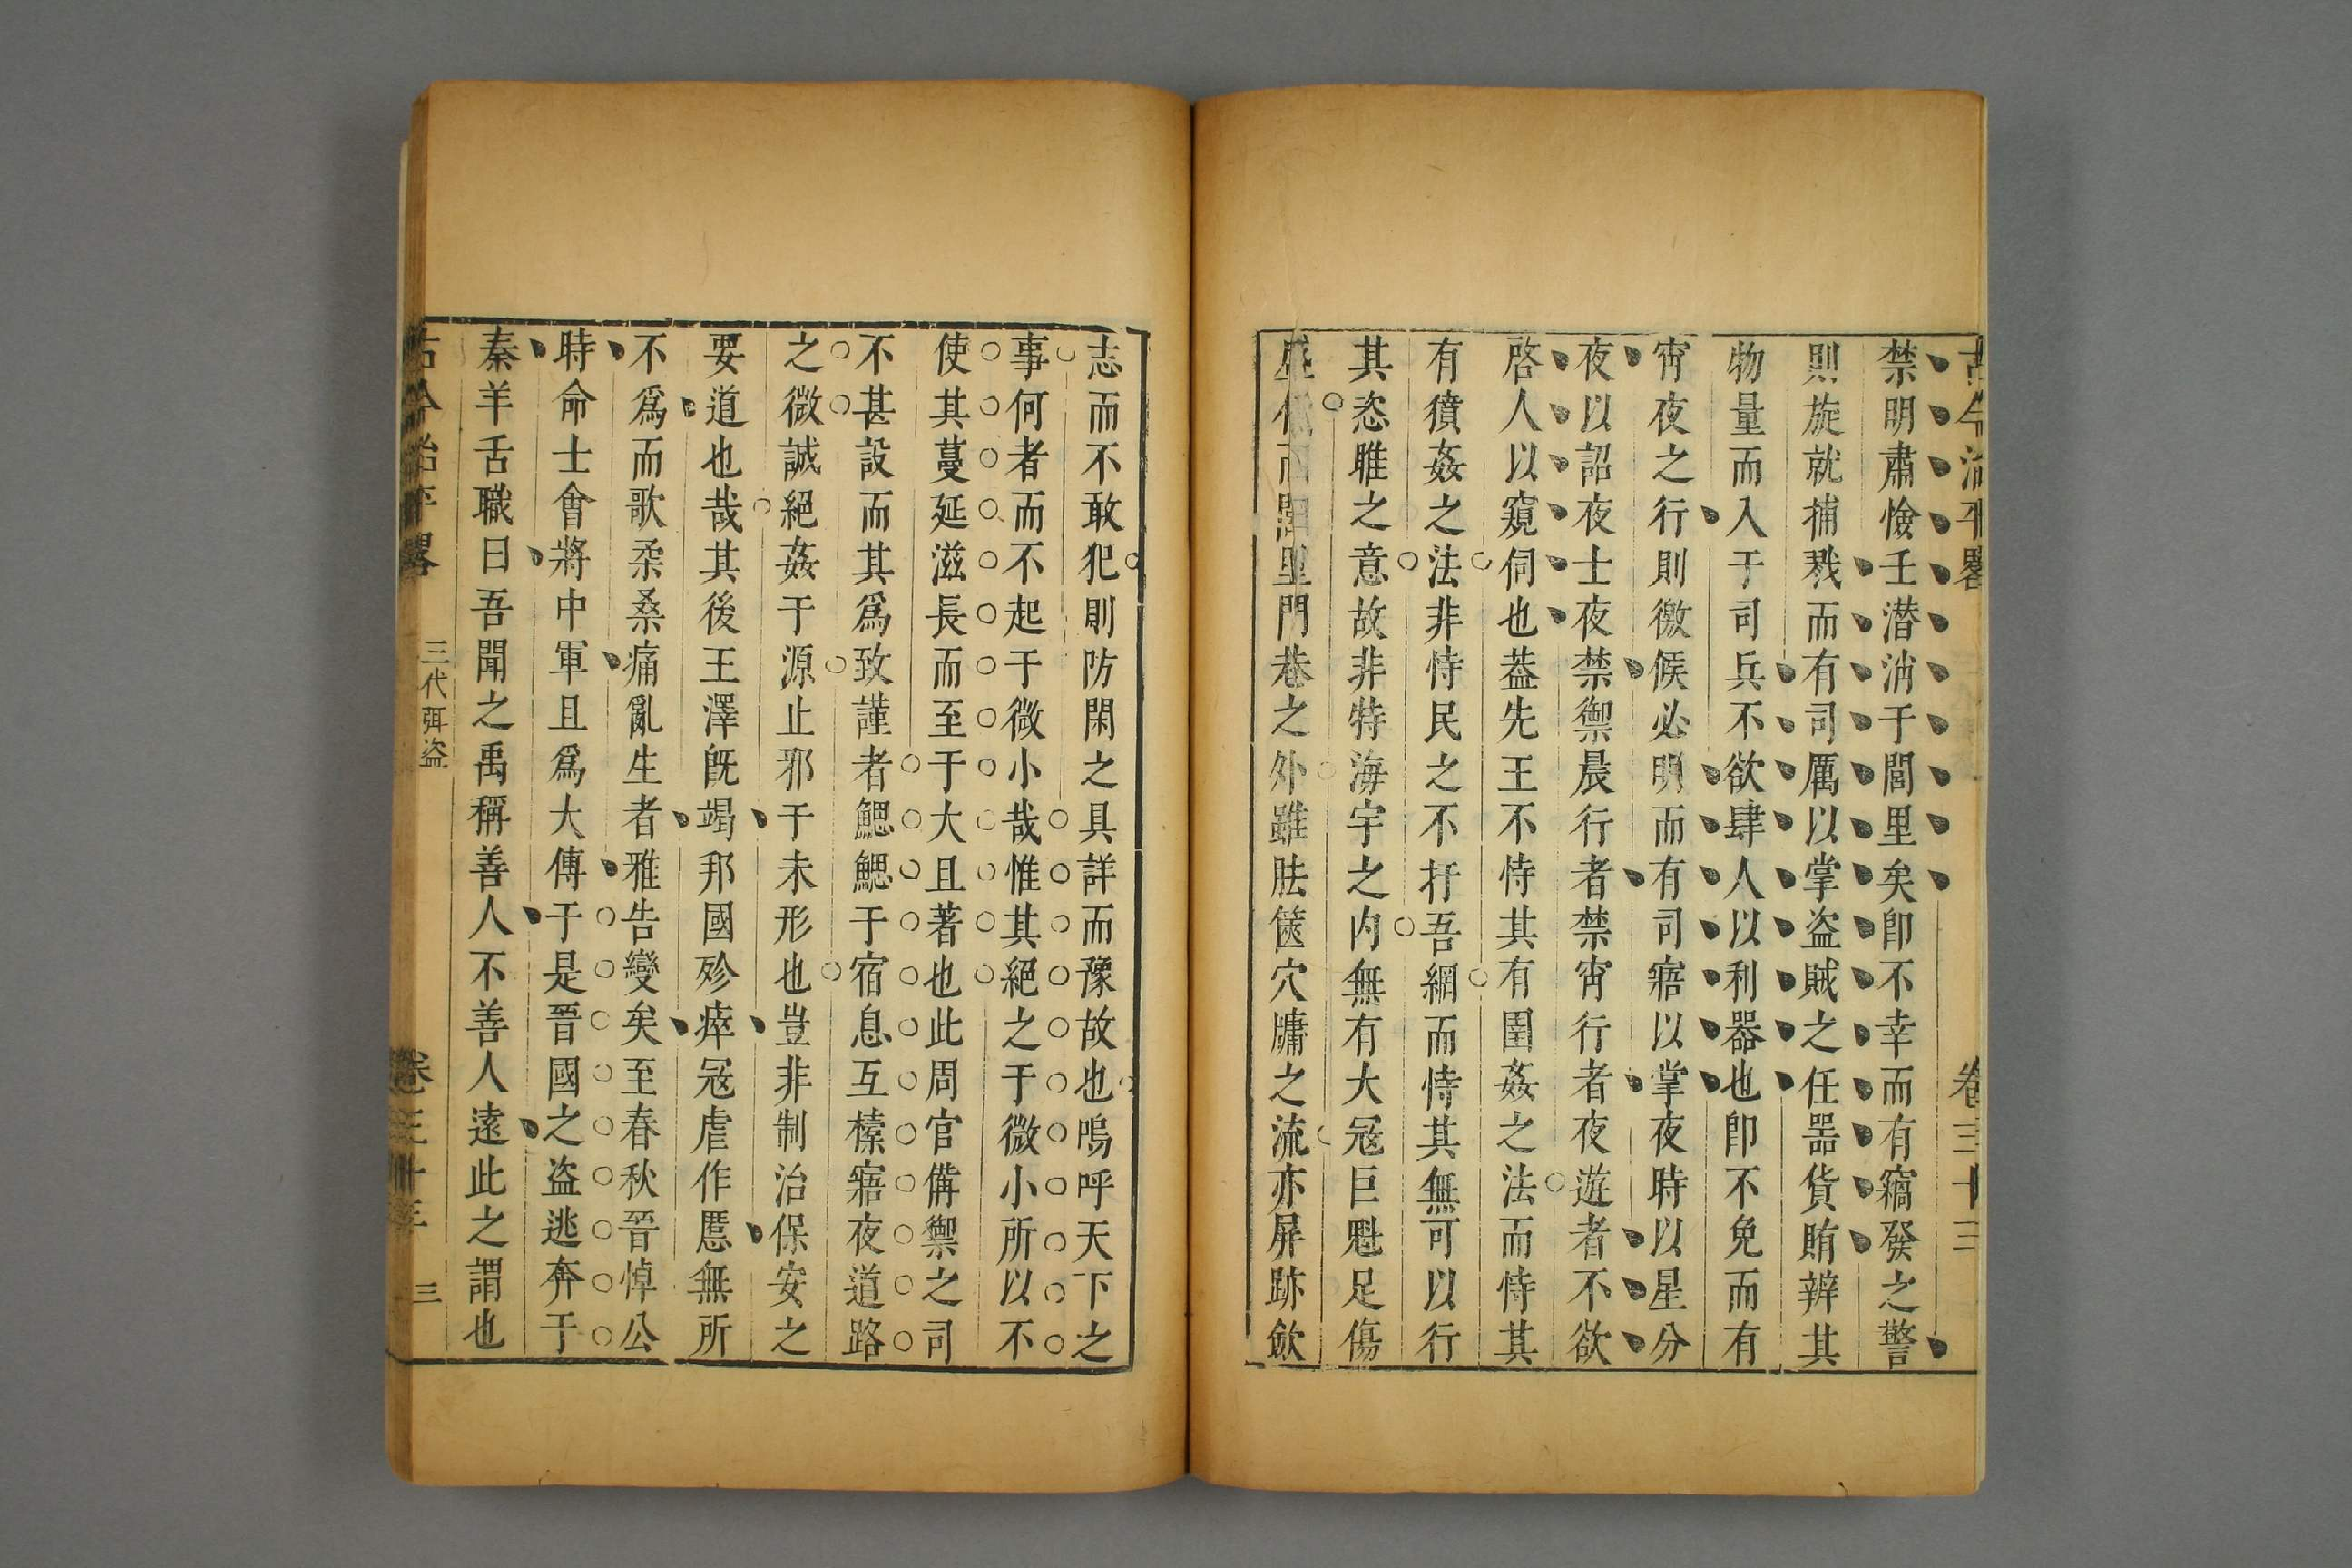 古今治平畧 卷三十三
禁明肅憸壬潛消于閭里矣卽不幸而有竊發之警
則旋就捕戮而有司厲以掌盜賊之任器貨賄辨其
物量而入于司兵不欲肆人以利器也卽不免而有
宵夜之行則徼候必明而有司寤以掌夜時以星分
夜以詔夜士夜禁禦晨行者禁宵行者夜遊者不欲
啓人以窺伺也葢先王不恃其有圉姦之法而恃其
有獖姦之法非恃民之不扞吾網而恃其無可以行
其恣睢之意故非特海宇之内無有大冦巨魁足傷
里門巷之外雖胠篋穴牗之流亦屏跡歛
志而不敢犯則防閑之具詳而豫故也嗚呼天下之
事何者而不起于微小哉惟其絕之于微小所以不
使其蔓延滋長而至于大且著也此周官備禦之司
不甚設而其爲致謹者鰓鰓于宿息互㯿寤夜道路
之微誠絕姦于源止邪于未形也豈非制治保安之
要道也哉其後王澤旣竭邦國殄瘁冦虐作慝無所
不爲而歌柔桑痛亂生者雅告變矣至春秋晉悼公
時命士會將中軍且爲大傅于是晉國之盜逃奔于
秦羊舌職曰吾聞之禹稱善人不善人遠此之謂也
古今治平畧 三代弭盜 卷三十三 三